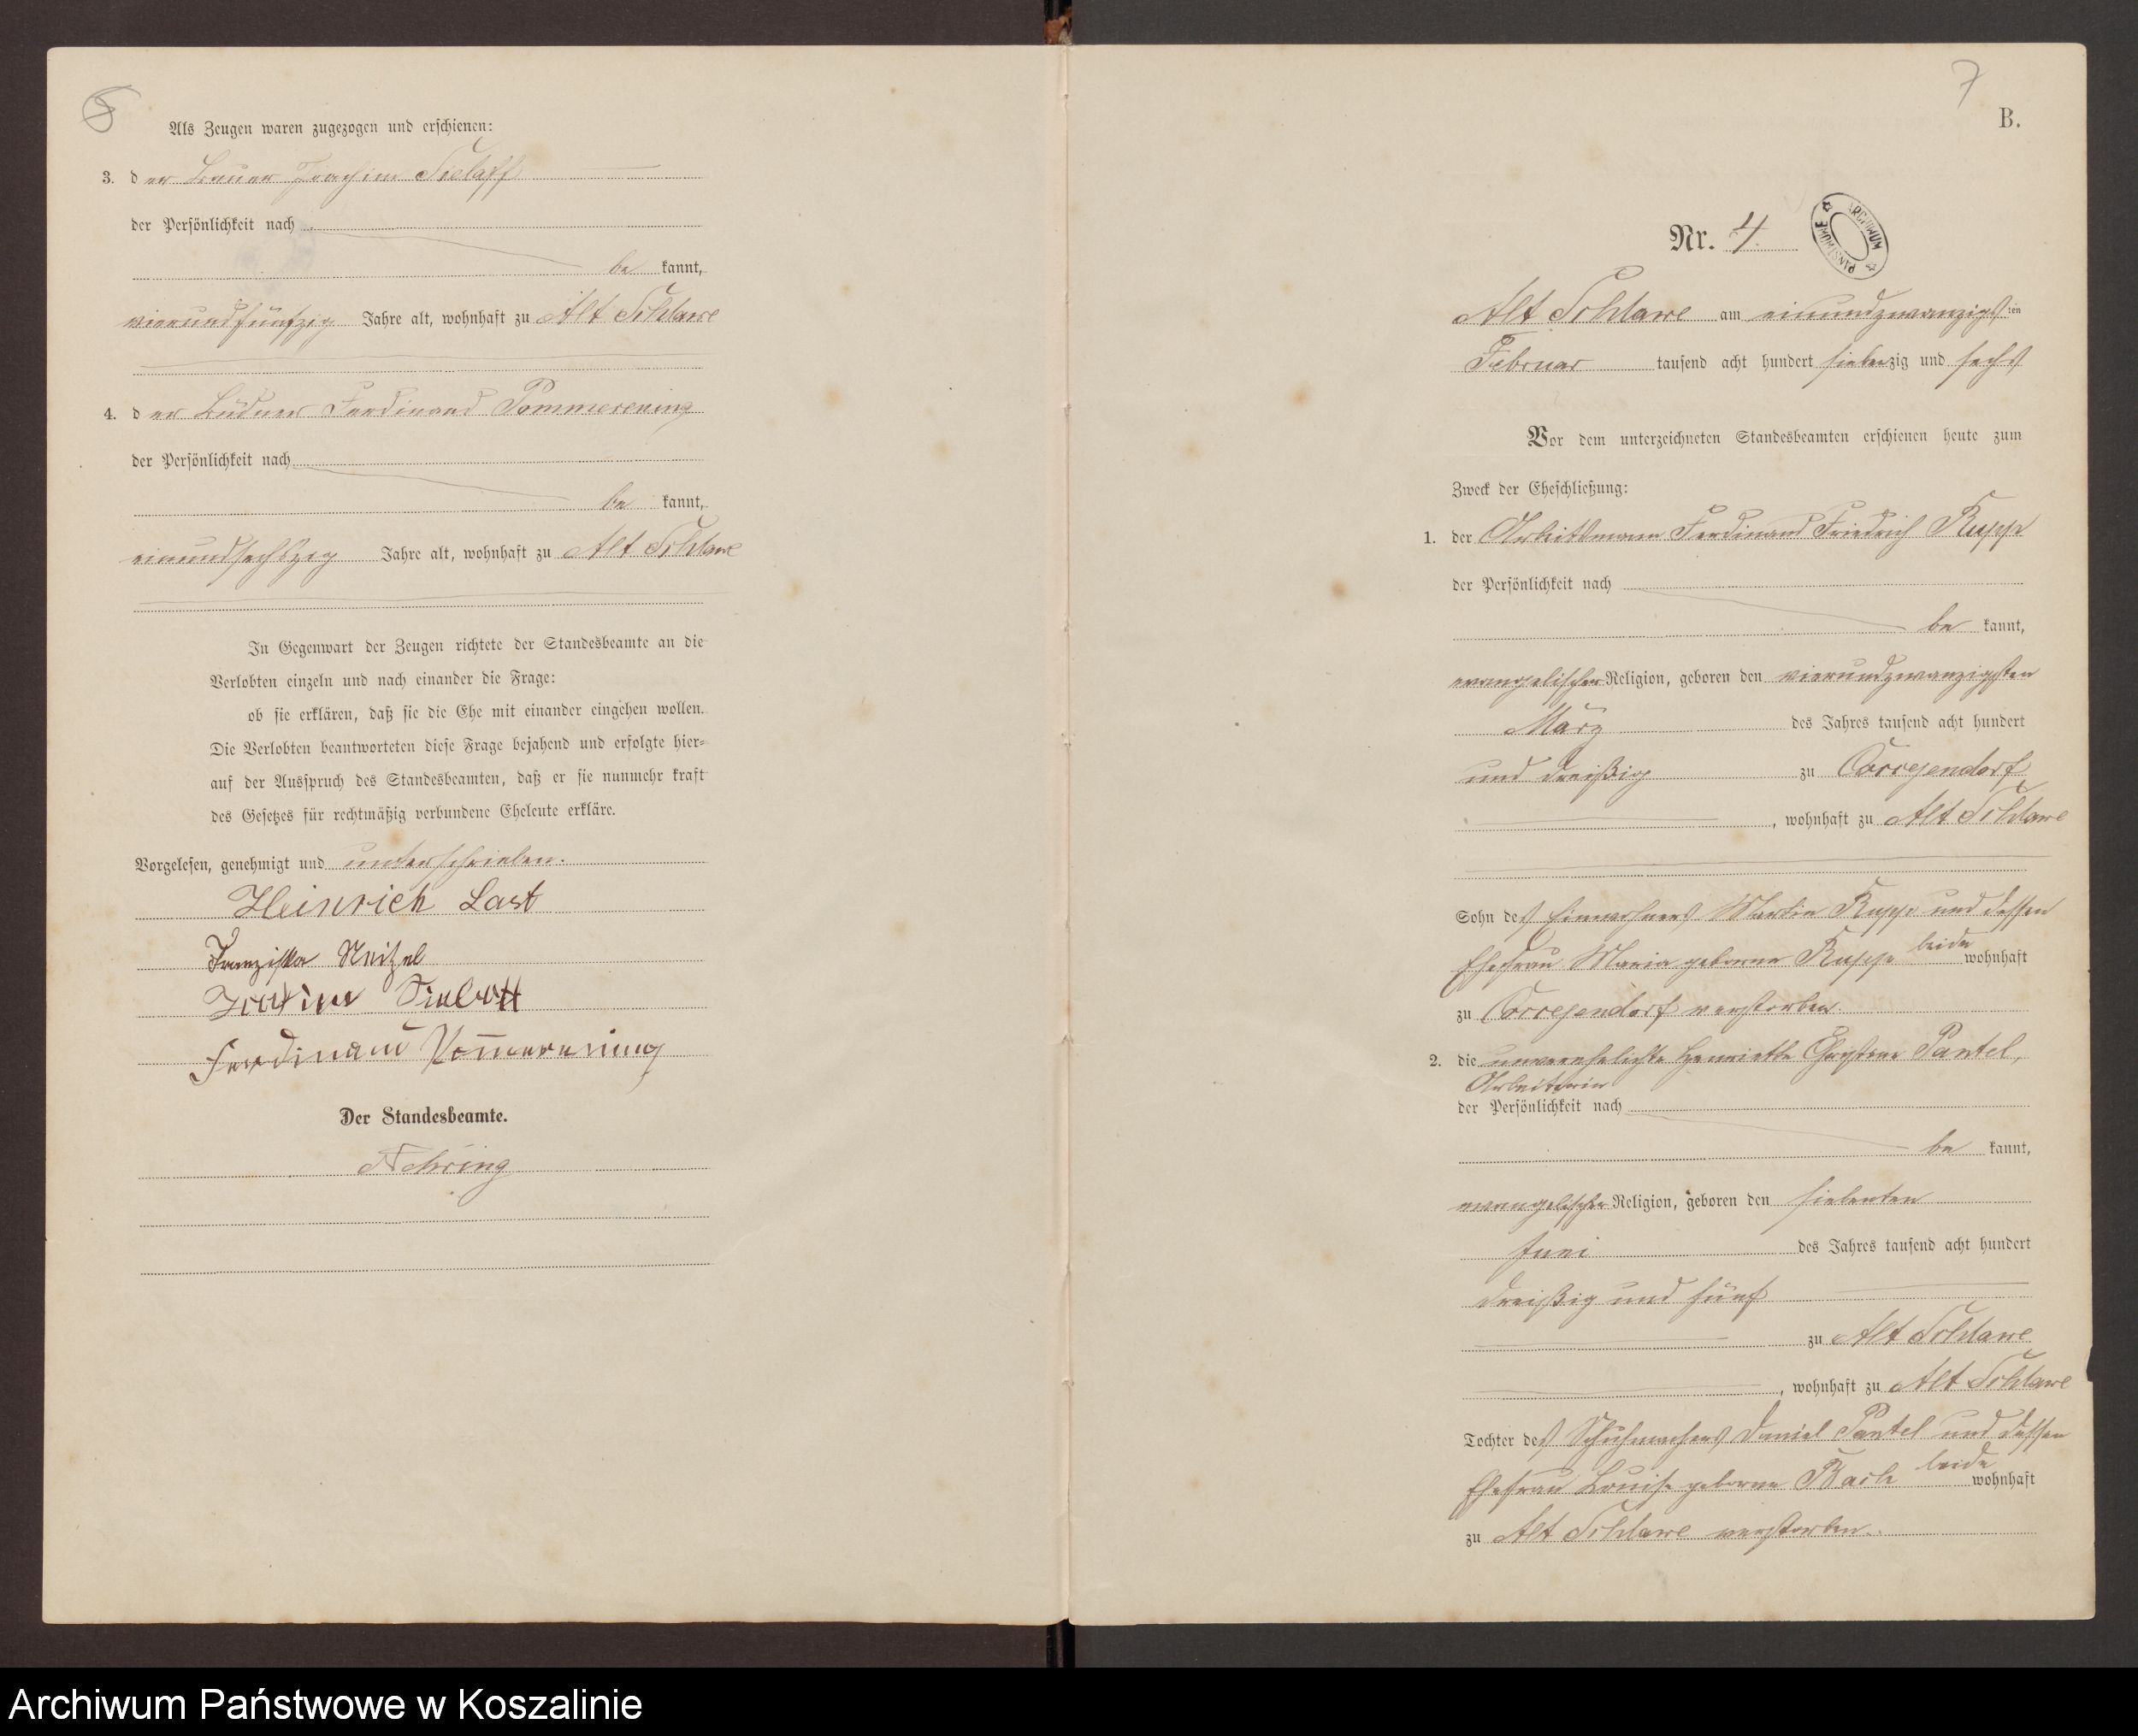 8
Als Zeugen waren zugezogen und erschienen:
3. der Bauer Joachim Sielaff
der Persönlichkeit nach
be kannt,
vierundfünfzig Jahre alt, wohnhaft zu Alt Schlawe
4. der Büdner Ferdinand Pommerening
der Persönlichkeit nach
be kannt,
einundsechszig Jahre alt, wohnhaft zu Alt Schlawe
In Gegenwart der Zeugen richtete der Standesbeamte an die
Verlobten einzeln und nach einander die Frage:
ob sie erklären, daß sie die Ehe mit einander eingehen wollen.
Die Verlobten beantworteten diese Frage bejahend und erfolgte hier-
auf der Ausspruch des Standesbeamten, daß er sie nunmehr kraft
des Gesetzes für rechtmäßig verbundene Eheleute erkläre.
Vorgelesen, genehmigt und unterschrieben.
Heinrich Last
Franziska Neitzel
Joachim Sielaff
Ferdinand Pommerening
Der Standesbeamte.
Nehring
7
B.
Nr. 4.
ARCHIWUM PAŃSTWOWE
Alt Schlawe am einundzwanzigsten
Februar tausend acht hundert siebenzig und sechs
Vor dem unterzeichneten Standesbeamten erschienen heute zum
Zweck der Eheschließung:
1. der Arbeitsmann Ferdinand Friedrich Rupp
der Persönlichkeit nach
be kannt,
evangelischer Religion, geboren den vierundzwanzigsten
März des Jahres tausend acht hundert
und dreißig zu Corregendorf
, wohnhaft zu Alt Schlawe
Sohn des Einwohners Martin Rupp und dessen
Ehefrau Maria geborne Rupp beide wohnhaft
zu Corregendorf verstorben.
2. die unverehelichte Henriette Christine Pantel,
Arbeiterin
der Persönlichkeit nach
be kannt,
evangelischer Religion, geboren den siebenten
Juni des Jahres tausend acht hundert
dreißig und fünf
zu Alt Schlawe
, wohnhaft zu Alt Schlawe
Tochter des Schuhmachers Daniel Pantel und dessen
Ehefrau Louise geborne Rach beide wohnhaft
zu Alt Schlawe verstorben.
Archiwum Państwowe w Koszalinie